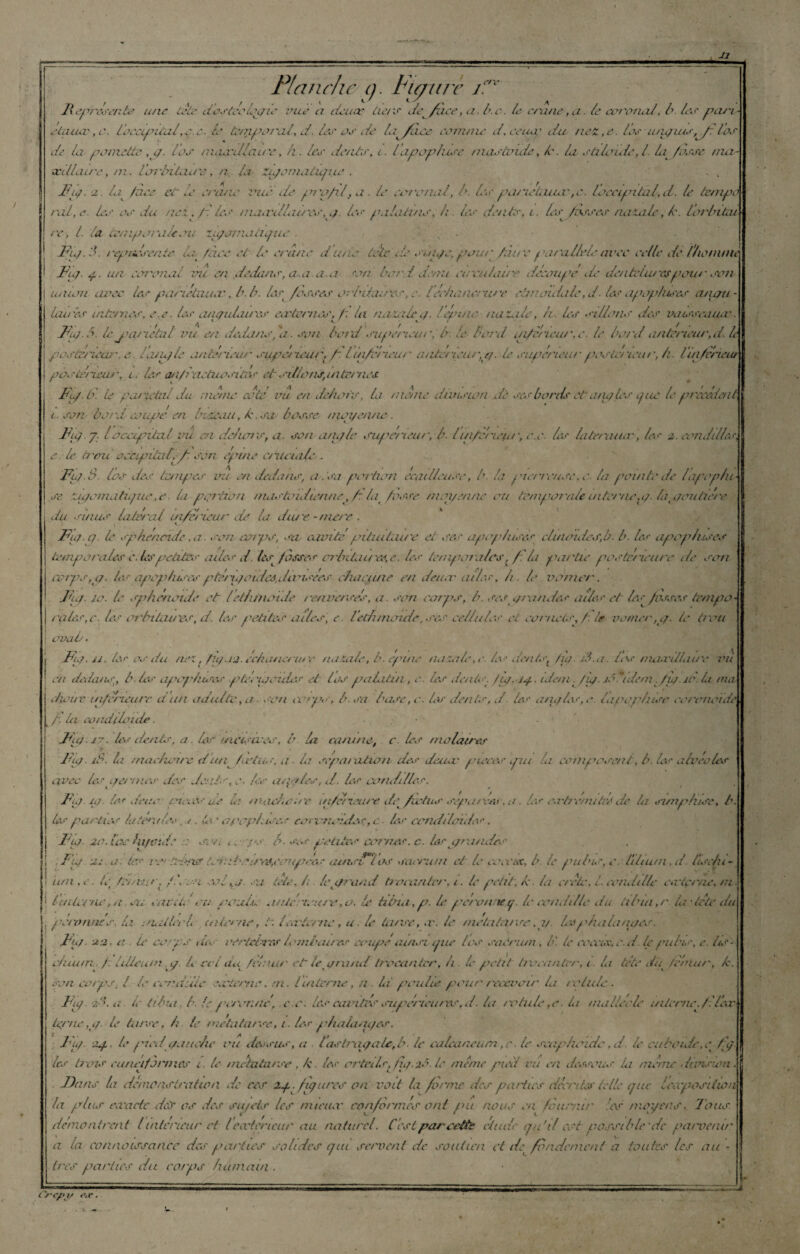 Planche 9. Figure 1.re
Représente une tête d'ostéologie vue a deux tiers de face, a. b. c. le crâne, a. le coronal, b. les pari-
étaux, c. l'occipital, c. c. le temporal, d. les os de la face comme d. ceux du nez, e. les unguis, f. l'os
de la pomette, g. l'os maxillaire, h. les dents, i. l'apophise mastoide, k. la stiloide, l. la fosse ma-
xillaire, m. l'orbitaire, n. la zigomatique.
Fig. 2. la face et le crâne vue de profil, a. le coronal, b. les pariétaux, c. l'occipital, d. le tempo
ral, e. les os du nez, f. les maxillaires, g. les palatins, h. les dents, i. les fosses nazale, k. l'orbitai
re, l. la temporale ou zigomatique.
Fig. 3. représente la face et le crâne d'une tête de singe, pour faire parallele avec celle de l'homme
Fig. 4. un coronal vû en dedans, a. a. a. a. son bord demi circulaire découpé de dentelures pour son
union avec les pariétaux, b. b. les fosses orbitaires, c. l'échancrure etmoidale, d. les apophises angu-
laires internes, e. e. les angulaires externes, f. la nazale, g. l'épine nazale, h. les sillons des vaisseaux.
Fig. 5. le pariétal vû en dedans, a. son bord supérieur, b. le bord inférieur, c. le bord antérieur, d. le
postérieur, e. l'angle antérieur supérieur, f. l'inférieur antérieur, g. le supérieur postérieur, h. l'inférieur
postérieur, i. les anfractuosités et sillons, internes
Fig. 6. le pariétal du même côté vû en dehors, la même division de ses bords et angles que le précédent
i. son bord coupé en bizeau, k. sa bosse moyenne.
Fig. 7. l'occipital vû en dehors, a. son angle supérieur, b. l'inférieur, c. c. les lateraux, les 2. condilles,
e. le trou occipital, f. son épine cruciale.
Fig. 8. l'os des tempes vû en dedans, a. sa portion écailleuse, b. la pierreuse, c. la pointe de l'apophi-
se zigomatique, e. la portion mastoidienne, f. la fosse moyenne ou temporale interne, g. la goutiere
du sinus latéral inférieur de la dure-mere.
Fig. 9. le sphénoide, a. son corps, sa cavité pituitaire et ses apophises clinoides, b. b. les apophises
temporales c. les petites ailes d. les fosses orbitaires, e. les temporales, f. la partie postérieure de son
corps, g. les apophises ptérigoides, divisées chacune en deux ailes, h. le vomer.
Fig. 10. le sphénoide et l'ethmoide renversés, a. son corps, b. ses grandes ailes et les fosses tempo-
rales, c. les orbitaires, d. les petites ailes, e. l'ethmoide, ses cellules et cornets, f. le vomer, g. le trou
oval.
Fig. 11. les os du nez, fig. 12. échancrure nazale, b. épine nazale, c. les dents, fig. 13. a. l'os maxillaire vû
en dedans, b. les apophises ptérigoides et l'os palatin, c. les dents, fig. 14. idem, fig. 15. idem, fig. 16. la ma
choire inférieure d'un adulte, a. son corps, b. sa base, c. les dents, d. les angles, e. l'apophise coronoide
f. la condiloide.
Fig. 17. les dents, a. les incisives, b. la canine, c. les molaires
Fig. 18. la machoire d'un fœtus, a. la séparation des deux pieces qui la composent, b. les alvéoles
avec les germes des dents, c. les angles, d. les condilles.
Fig. 19. les deux pieces de la machoire inférieure de fœtus séparées, a. les extrémités de la simphise, b.
les parties latérales, les apophises coronoides, c. les condiloides.
Fig. 20. l'os hyoide a. son corps b. ses petites cornes, c. les grandes
Fig. 21. a. les vertebres lombaires, coupées ainsi l'os sacrum et le coccix, b. le pubis, c. l'ilium, d. l'ischi-
um, e. le fémur, f. son col, g. sa tête, h. le grand trocanter, i. le petit, k. la crête, l. condille externe, m.
l'interne, n. sa cavité ou poulie antérieure, o. le tibia, p. le péronné, q. le condille du tibia, r. la tête du
péronné, s. la malléole interne, t. l'externe, u. le tarse, x. le métatarse, y. les phalanges.
Fig. 22. a. le corps des vertebres lombaires coupé ainsi que l'os sacrum, b. le coccix, c. d. le pubis, e. l'is-
chium, f. l'illeum g. le col du fémur et le grand trocanter, h. le petit trocanter, i. la tête du fémur, k.
son corps, l. le condille externe, m. l'interne, n. la poulie pour recevoir la rotule.
Fig. 23. a. le tibia, b. le péronné, c. c. les cavités supérieures, d. la rotule, e. la malléole interne, f. l'ex-
terne, g. le tarse, h. le métatarse, i. les phalanges.
Fig. 24. le pied gauche vû dessus, a. l'astragale, b. le calcaneum, c. le scaphoide, d. le cuboide, e. f. g.
les trois cunéiformes i. le métatarse, k. les orteils, fig. 25. le même pied vû en dessous la même division.
Dans la démonstration de ces 24. figures on voit la forme des parties décrites telle que l'exposition
la plus exacte des os des sujets les mieux conformés ont pû nous en fournir les moyens. Tous
démontrent l'intérieur et l'extérieur au naturel. C'est par cette étude qu'il est possible de parvenir
a la connoissance des parties solides qui servent de soutien et de fondement a toutes les au-
tres parties du corps humain.
Crepy ex.